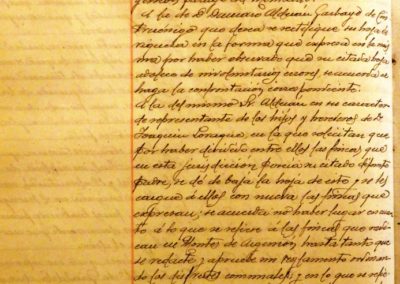 A la de D. Dámaso Alduán Garbayo de Cin-
truénigo que desea se rectifique su hoja de
riqueza en la forma que expresa en la mis-
ma por haber observado que su citada hoja
adolece de involuntarios errores, se acuerda se
haga la confrontación correspondiente.
A la del mismo Sr. Alduán en su carácter
de representante de los hijos y herederos de D.
Joaquín en la que solicitan que
por haber dividido entre ellos las fincas que
en esta jurisdicción poseía su citado difunto
padre, se dé de baja la hoja de este y se les
cargue á ellos con nueva las fincas que
expresan; se acuerda no haber lugar en cuan-
to á lo que se refiere á las fincas que radi-
can en Montes de Argenzón, hasta tanto que
se redacte y apruebe un reglamento
do los disfrutes comunales; y en lo que se refie-